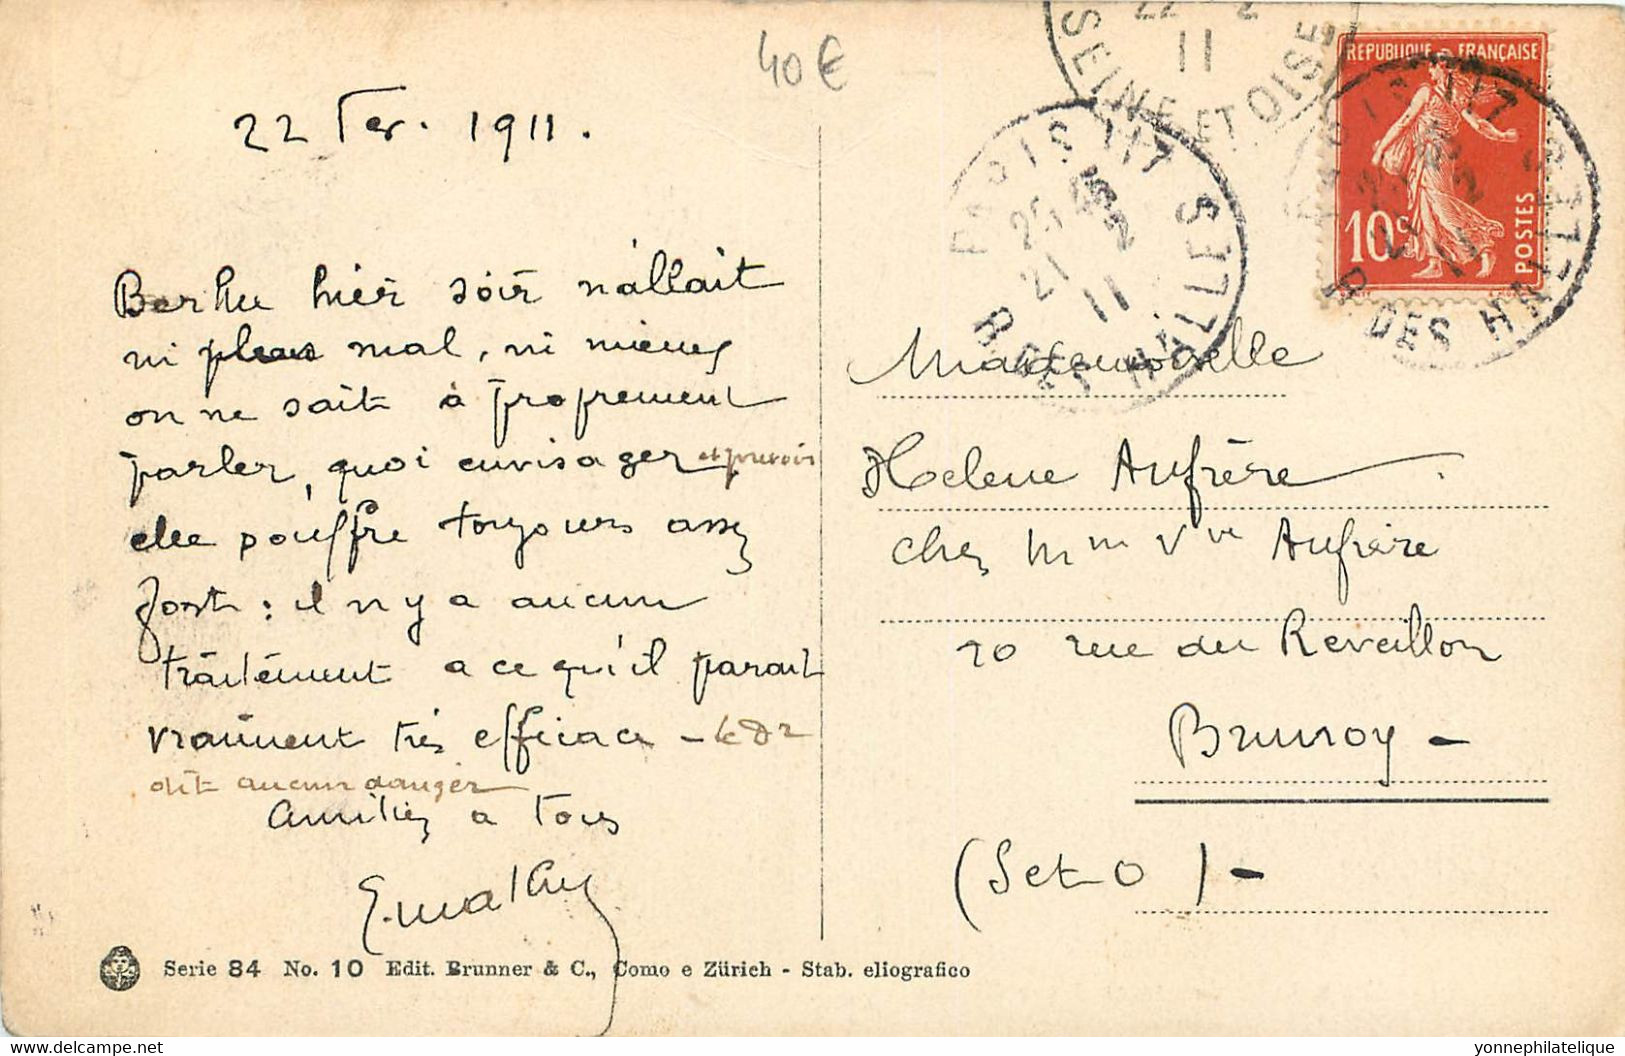 40€
22 Fev. 1911.
Berthe hier soir n'allait
ni plus mal, ni mieux
on ne sait à proprement
parler, quoi envisager et prévoir
elle pouffre toujours assez
fort : il n'y a aucun
traitement a ce qu'il parait
vraiment très efficace - le Dr
dit aucun danger
Amitiés a tous
E. Mathey
22 2
11
SEINE ET OISE
PARIS 117
21 2
11
R. DES HALLES
REPUBLIQUE FRANÇAISE
10c
POSTES
PARIS 117
21 2
11
R. DES HALLES
Mademoiselle
Helene Aufrère
chez Mme Vve Aufrère
10 rue du Reveillon
Brunoy -
(S et O) -
Serie 84 No. 10 Edit. Brunner & C., Como e Zürich - Stab. eliografico
www.delcampe.net
yonnephilatelie